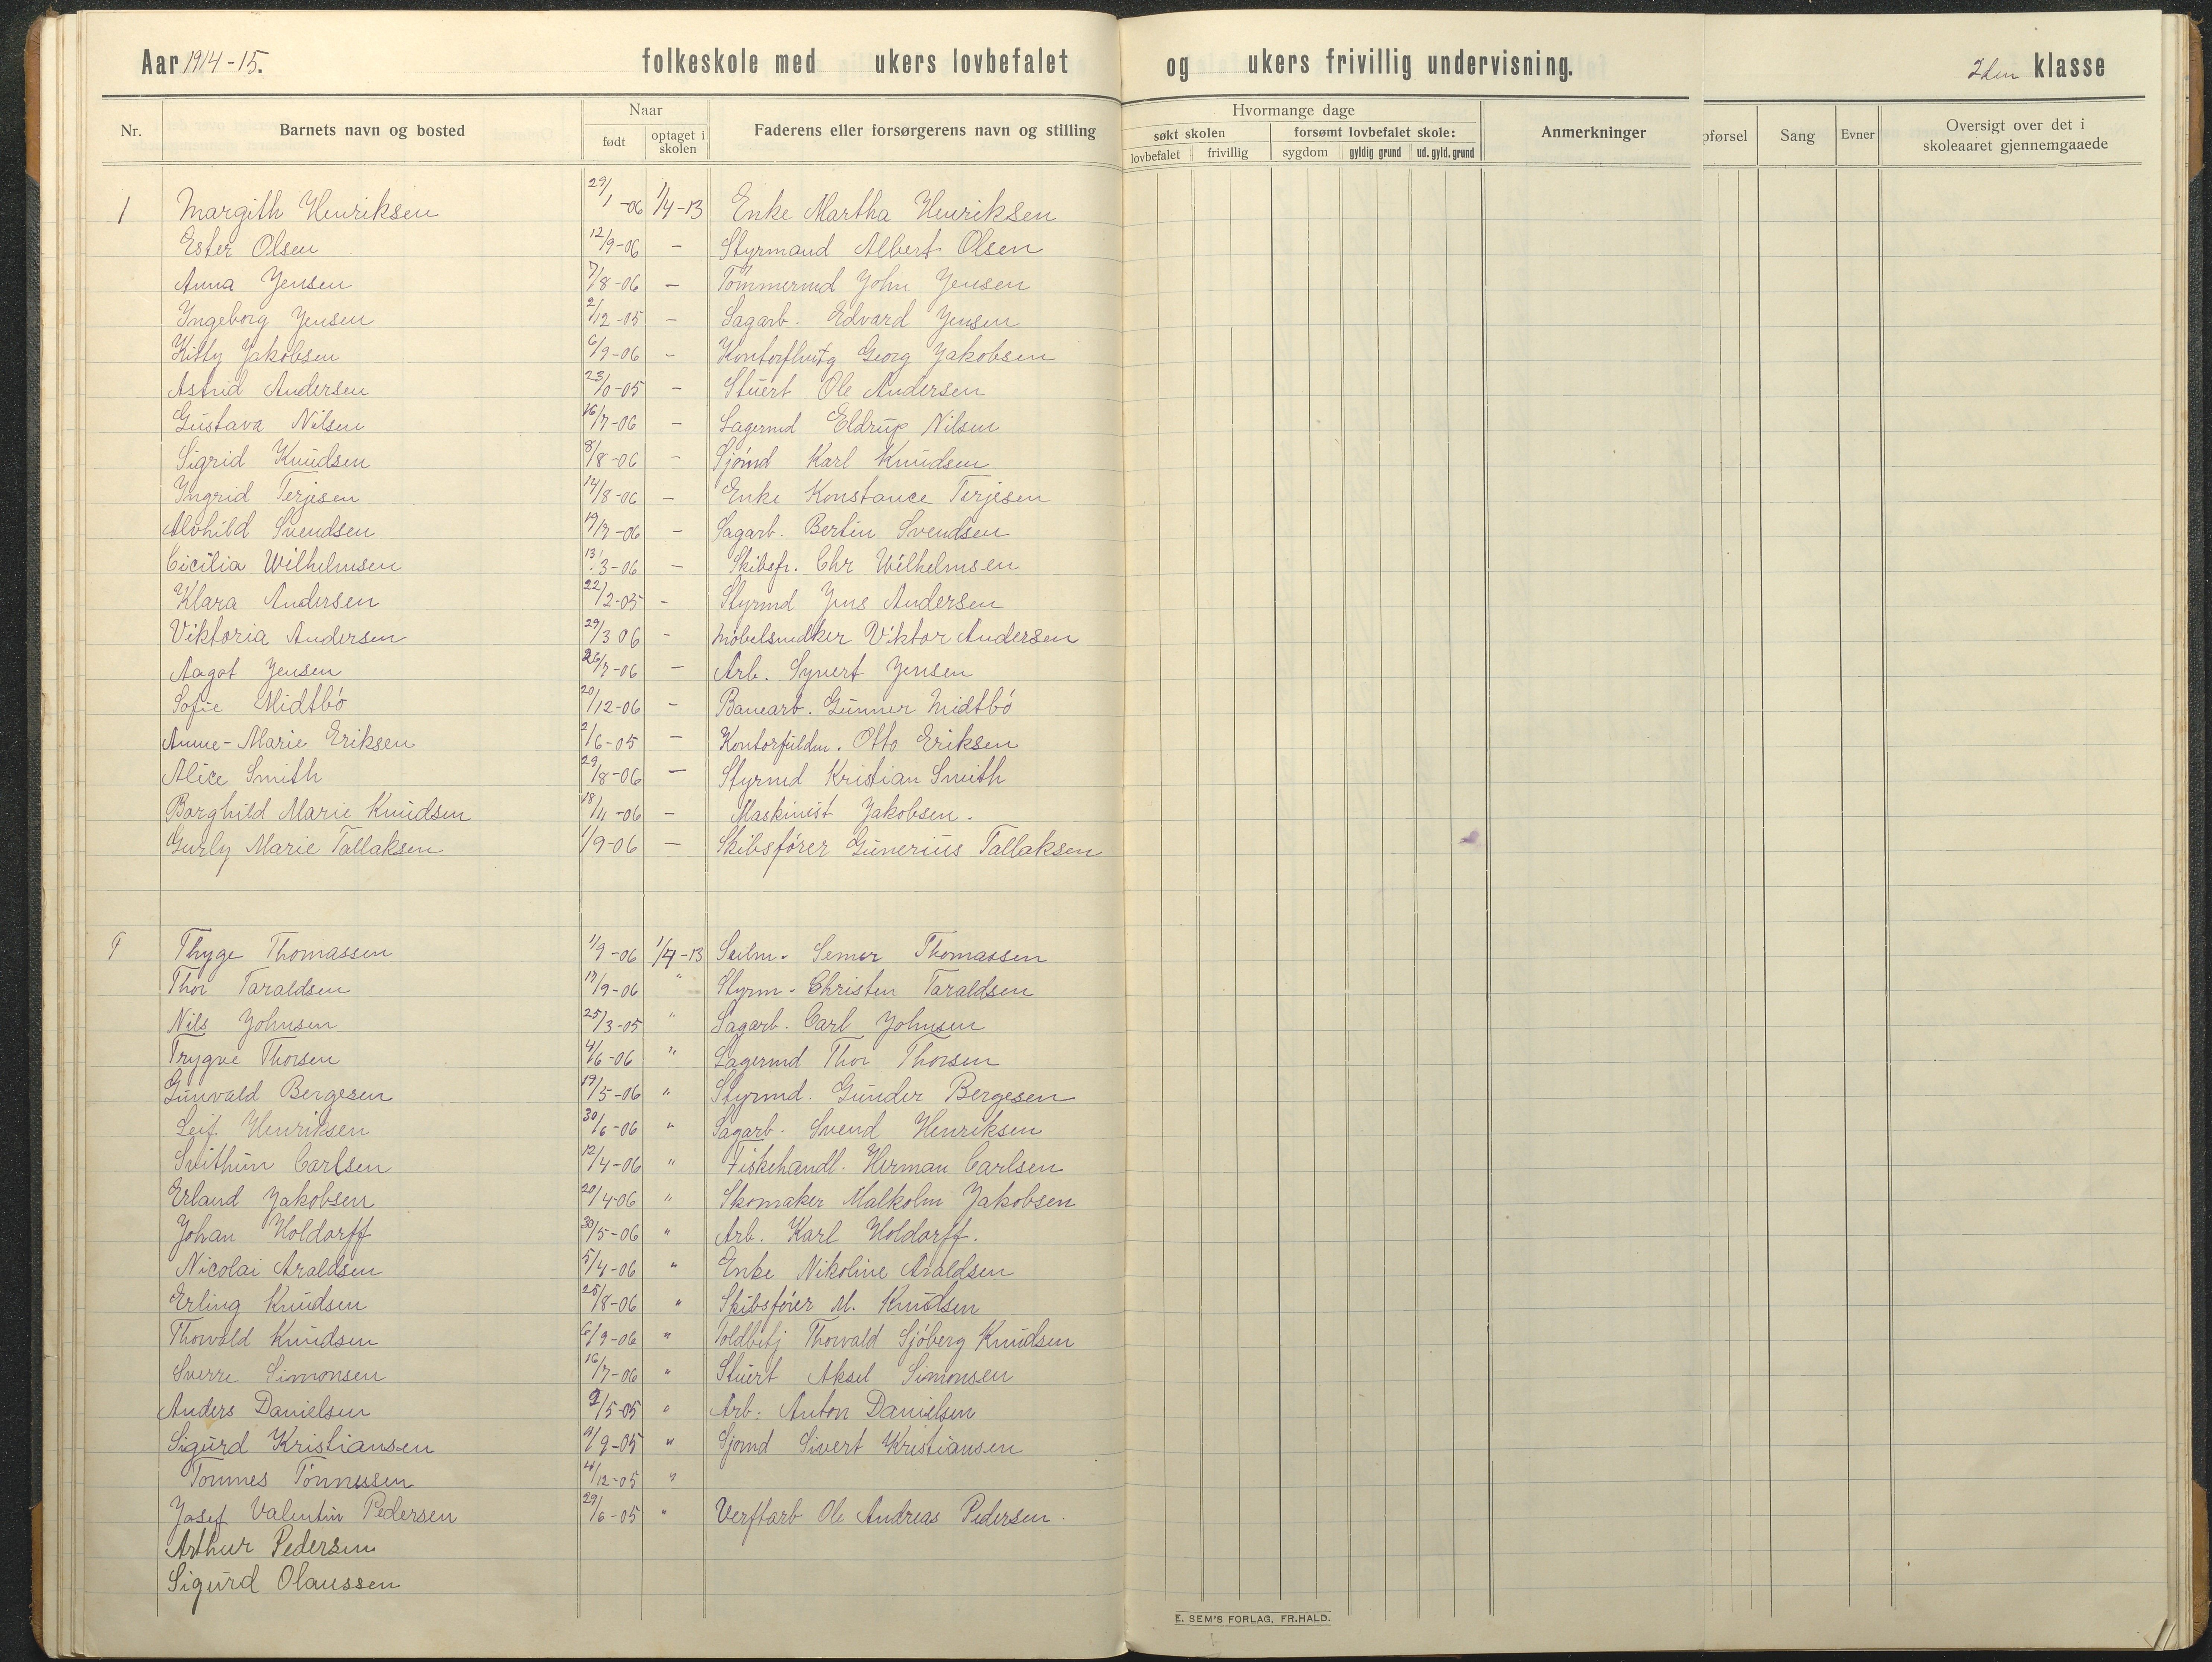 Aar 1914-15. folkeskole med ukers lovbefalet og ukers frivillig undervisning. 2den klasse
Nr. Barnets navn og bosted Naar født optaget i skolen Faderens eller forsørgerens navn og stilling Hvormange dage søkt skolen lovbefalet frivillig forsømt lovbefalet skole: sygdom gyldig grund ud. gyld. grund Anmerkninger pførsel Sang Evner Oversigt over det i skoleaaret gjennemgaaede
1 Margith Henriksen 29/1-06 1/4-13 Enke Martha Henriksen
Ester Olsen 12/9-06 – Styrmand Albert Olsen
Anna Jensen 7/8-06 – Tømmermd John Jensen
Ingeborg Jensen 2/12-05 – Sagarb. Edvard Jensen
Kitty Jakobsen 6/9-06 – Georg Jakobsen
Astrid Andersen 23/10-05 – Stuert Ole Andersen
Gustava Nilsen 16/7-06 – Lagermd Eldrup Nilsen
Sigrid Knudsen 8/8-06 – Sjømd Karl Knudsen
Ingrid Terjesen 14/8-06 – Enke Konstance Terjesen
Alvhild Svendsen 19/7-06 – Sagarb. Bertin Svendsen
Cicilia Wilhelmsen 13/3-06 – Skibsfr. Chr Wilhelmsen
Klara Andersen 22/2-05 – Styrmd Jens Andersen
Viktoria Andersen 29/3 06 – Møbelsnedker Viktor Andersen
Aagot Jensen 26/7-06 – Arb. Syvert Jensen
Sofie Midtbø 20/12-06 – Banearb. Gunner Midtbø
Anne-Marie Eriksen 2/6-05 – Kontorfuldm. Otto Eriksen
Alice Smith 29/8-06 – Styrmd Kristian Smith
Borghild Marie Knudsen 18/4-06 – Maskinist Jakobsen.
Gurly Marie Tallaksen 1/9-06 – Skibsfører Gunerius Tallaksen
1 Thyge Thomassen 1/9-06 1/4-13 Seilm. Semer Thomassen
Thor Taraldsen 17/9-06 " Styrm. Christen Taraldsen
Nils Johnsen 25/3-05 " Sagarb. Carl Johnsen
Trygve Thorsen 4/6-06 " Lagermd Thor Thorsen
Gunvald Bergesen 19/5-06 " Styrmd. Gunder Bergesen
Leif Henriksen 30/6-06 " Sagarb. Svend Henriksen
Svithun Carlsen 12/4-06 " Fiskehandl. Herman Carlsen
Erland Jakobsen 20/4-06 " Skomaker Malkolm Jakobsen
Johan Holdorff 30/5-06 " Arb. Karl Holdorff.
Nicolai Araldsen 5/4-06 " Enke Nikoline Araldsen
Erling Knudsen 25/8-06 " Skibsfører M. Knudsen
Thorvald Knudsen 6/9-06 " Toldbetj Thorvald Sjøberg Knudsen
Sverre Simonsen 16/7-06 " Stuert Aksel Simonsen
Anders Danielsen 2/5-05 " Arb. Anton Danielsen
Sigurd Kristiansen 11/9-05 " Sjømd Sivert Kristiansen
Tønnes Tønnesen 4/12-05 "
Josef Valentin Pedersen 29/6-05 " Verftarb Ole Andreas Pedersen.
Arthur Pedersen
Sigurd Olaussen
E. SEM'S FORLAG, FR.HALD.
11